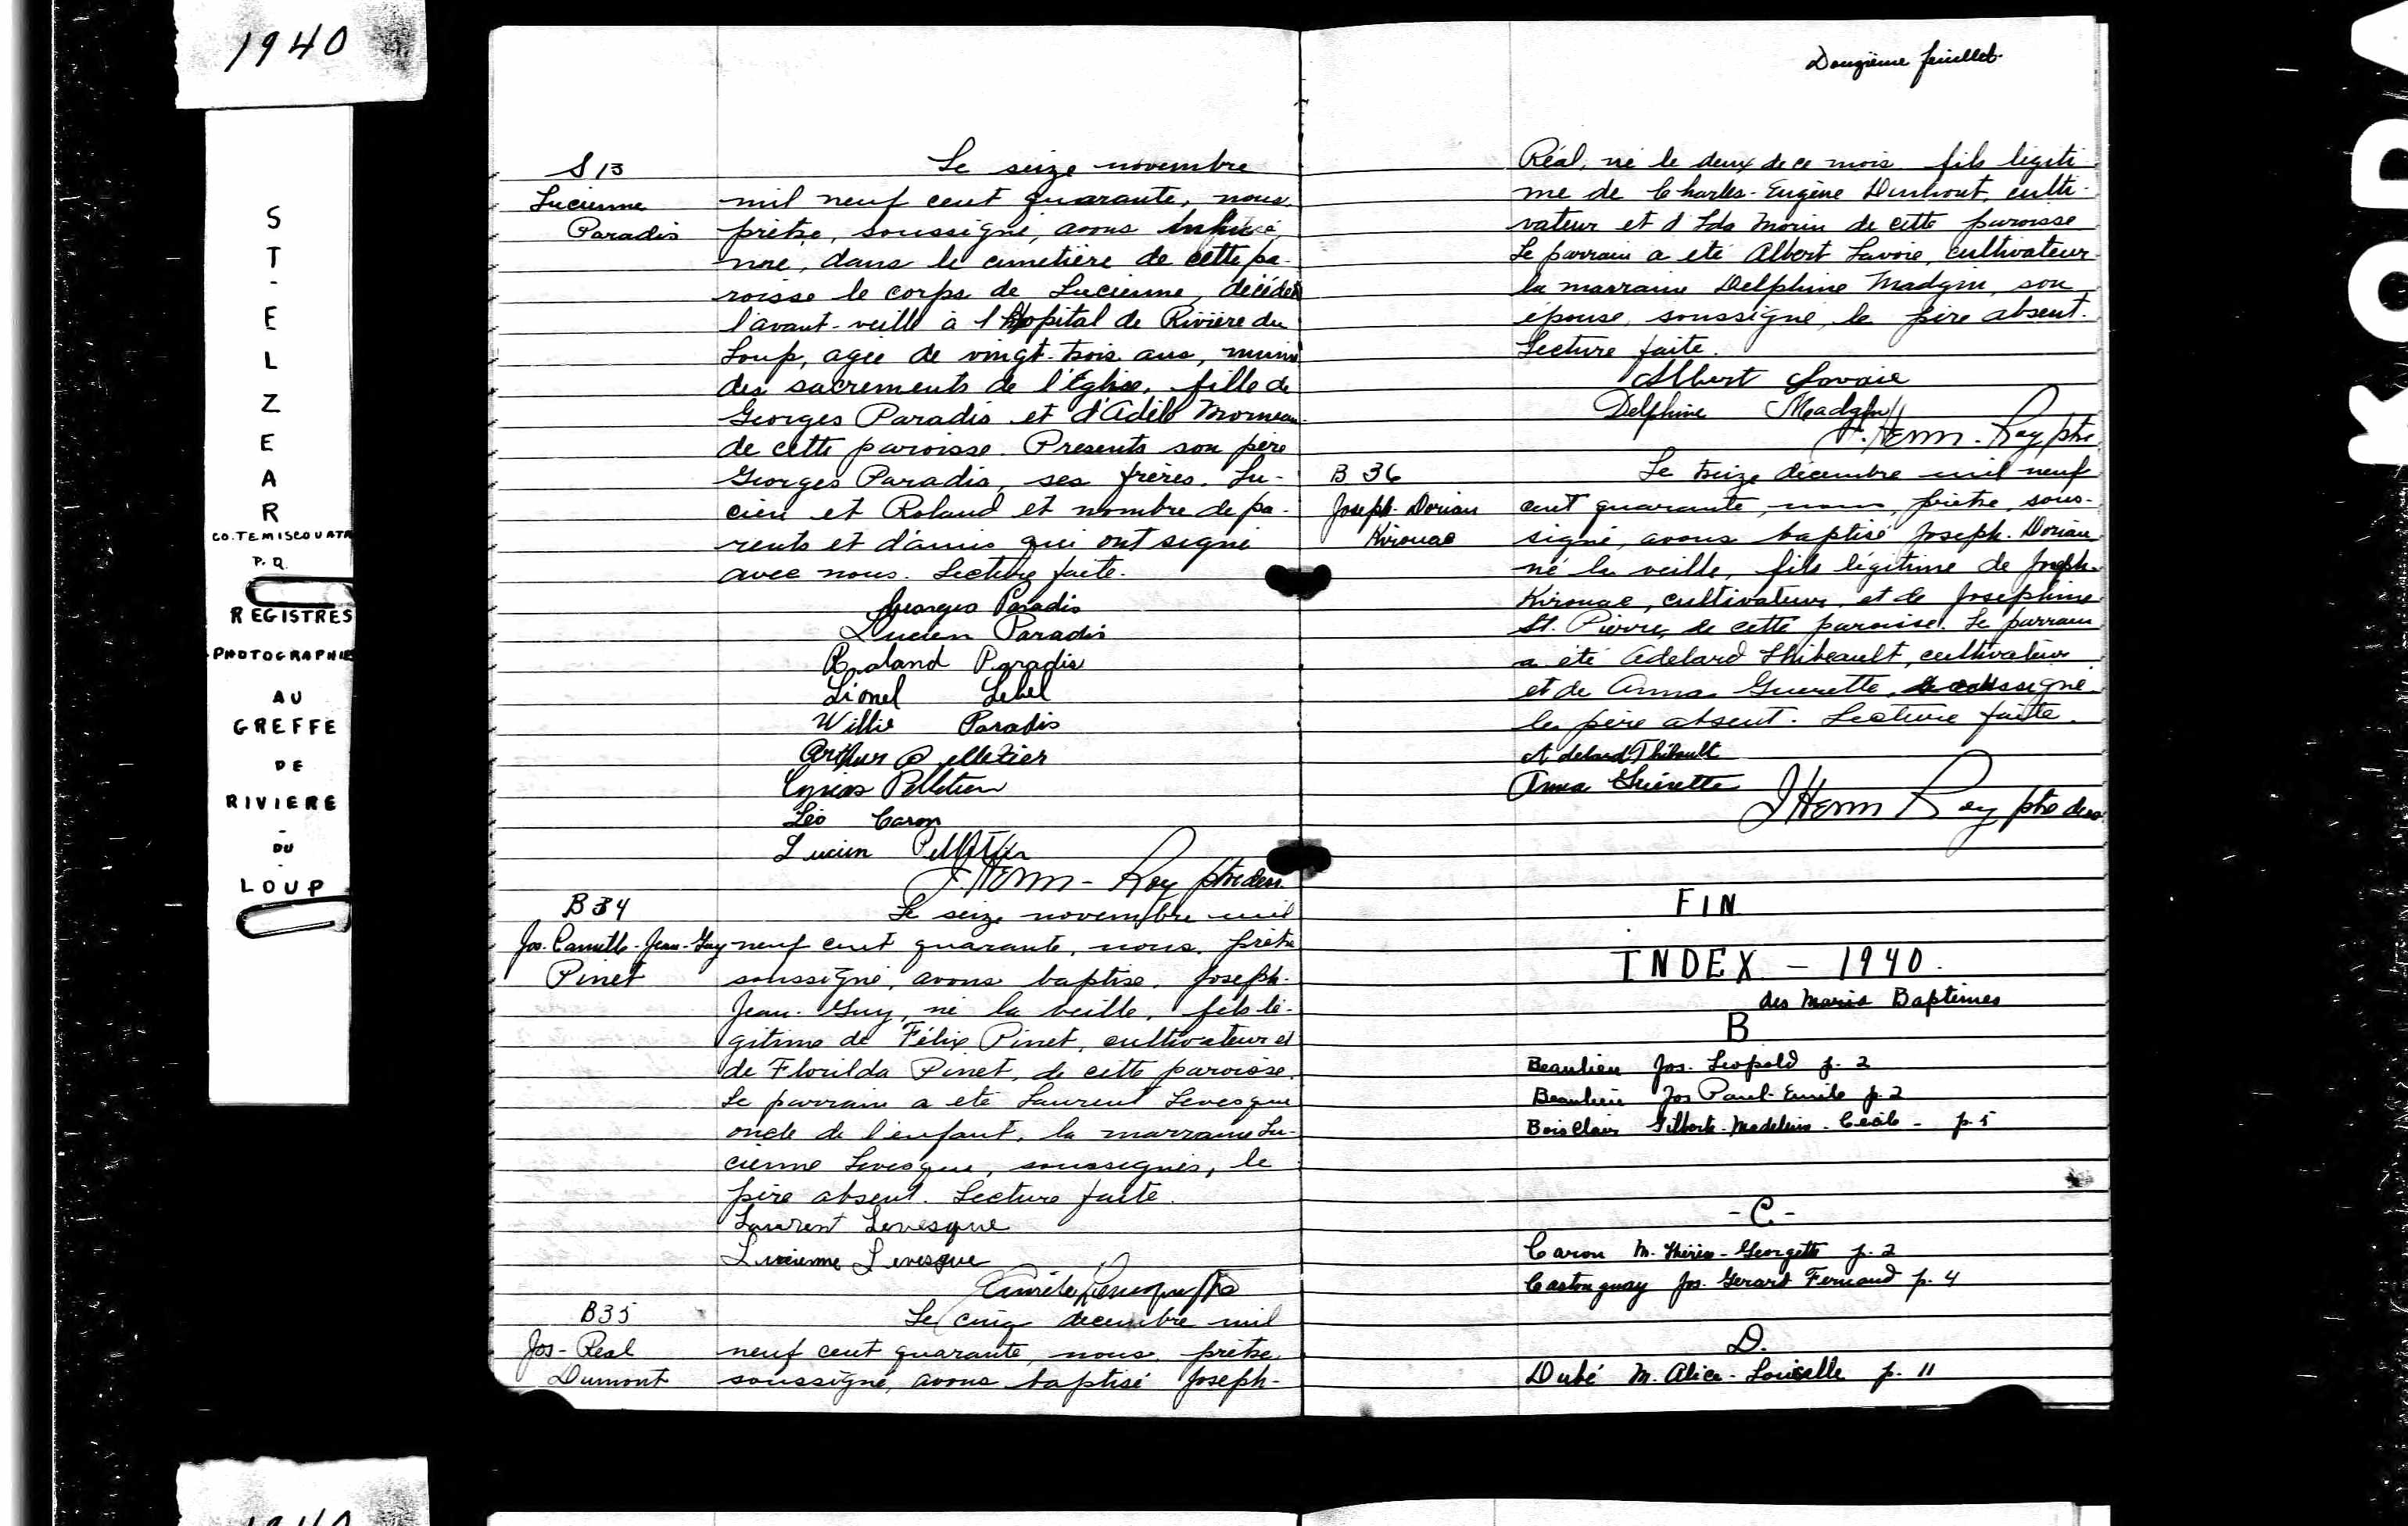 1940
ST-ELZEAR
CO. TEMISCOUATA
P.Q.
REGISTRES
PHOTOGRAPHIE
AU
GREFFE
DE
RIVIERE
-
DU
-
LOUP
S 13
Lucienne
Paradis
Le seize novembre
mil neuf cent quarante, nous
prêtre, soussigné, avons inhumé
dans le cimetière de cette pa-
roisse le corps de Lucienne, décédée
l'avant-veille à l'hopital de Rivière du
Loup, agée de vingt-trois ans, munie
des sacrements de l'Église, fille de
Georges Paradis et d'Adèle Morneau
de cette paroisse. Presents son père
Georges Paradis, ses frères. Lu-
cien et Roland et nombre de pa-
rents et d'amis qui ont signé
avec nous. Lecture faite.
Georges Paradis
Lucien Paradis
Roland Paradis
Lionel Lebel
Willie Paradis
Arthur Pelletier
Pelletier
Léo Caron
Lucien Pelletier
J. Herm - Roy ptre des.
B 34
Jos. Camille-Jean-Guy
Pinet
Le seize novembre mil
neuf cent quarante, nous, prêtre
soussigné, avons baptisé, Joseph-
Jean-Guy, né la veille, fils lé-
gitime de Félix Pinet, cultivateur et
de Florilda Pinet, de cette paroisse.
Le parrain a eté Laurent Levesque
oncle de l'enfant, la marraine Lu-
cienne Levesque, soussignés, le
père absent. Lecture faite.
Laurent Levesque
Lucienne Levesque
B35
Jos-Réal
Dumont
Le cinq decembre mil
neuf cent quarante, nous, prêtre
soussigné, avons baptisé Joseph-
Douzième feuillet
Réal, né le deux de ce mois fils légiti
me de Charles-Eugène Dumont, culti-
vateur et d'Ida Morin de cette paroisse
Le parrain a eté Albert Lavoie, cultivateur
la marraine Delphine Madgin, son
épouse, soussigné, le père absent.
Lecture faite.
Albert Lavoie
Delphine Madgin
J. Herm. Roy ptre
B 36
Joseph-Dorian
Kirouac
Le treize décembre mil neuf
cent quarante, nous, prêtre, sous-
signé, avons baptisé Joseph-Dorian
né la veille, fils légitime de Joseph
Kirouac, cultivateur, et de Josephine
St. Pierre, de cette paroisse. Le parrain
a été Adelard Thibeault, cultivateur
et de Anna Guerette, soussigné
le père absent. Lecture faite.
Adelard Thibault
Anna Guérette
J Herm Roy ptre des.
FIN
INDEX - 1940.
des Maria Baptêmes
B
Beaulieu Jos. Leopold p. 2
Beaulieu Jos Paul-Emile p. 2
BoisClair Gilberte-Madeleine-Cécile - p. 5
- C -
Caron M. Thérèse-Georgette p. 2
Castonguay Jos. Gerard Fernand p. 4
D.
Dubé M. Alice-Louiselle p. 11
1940
KODA